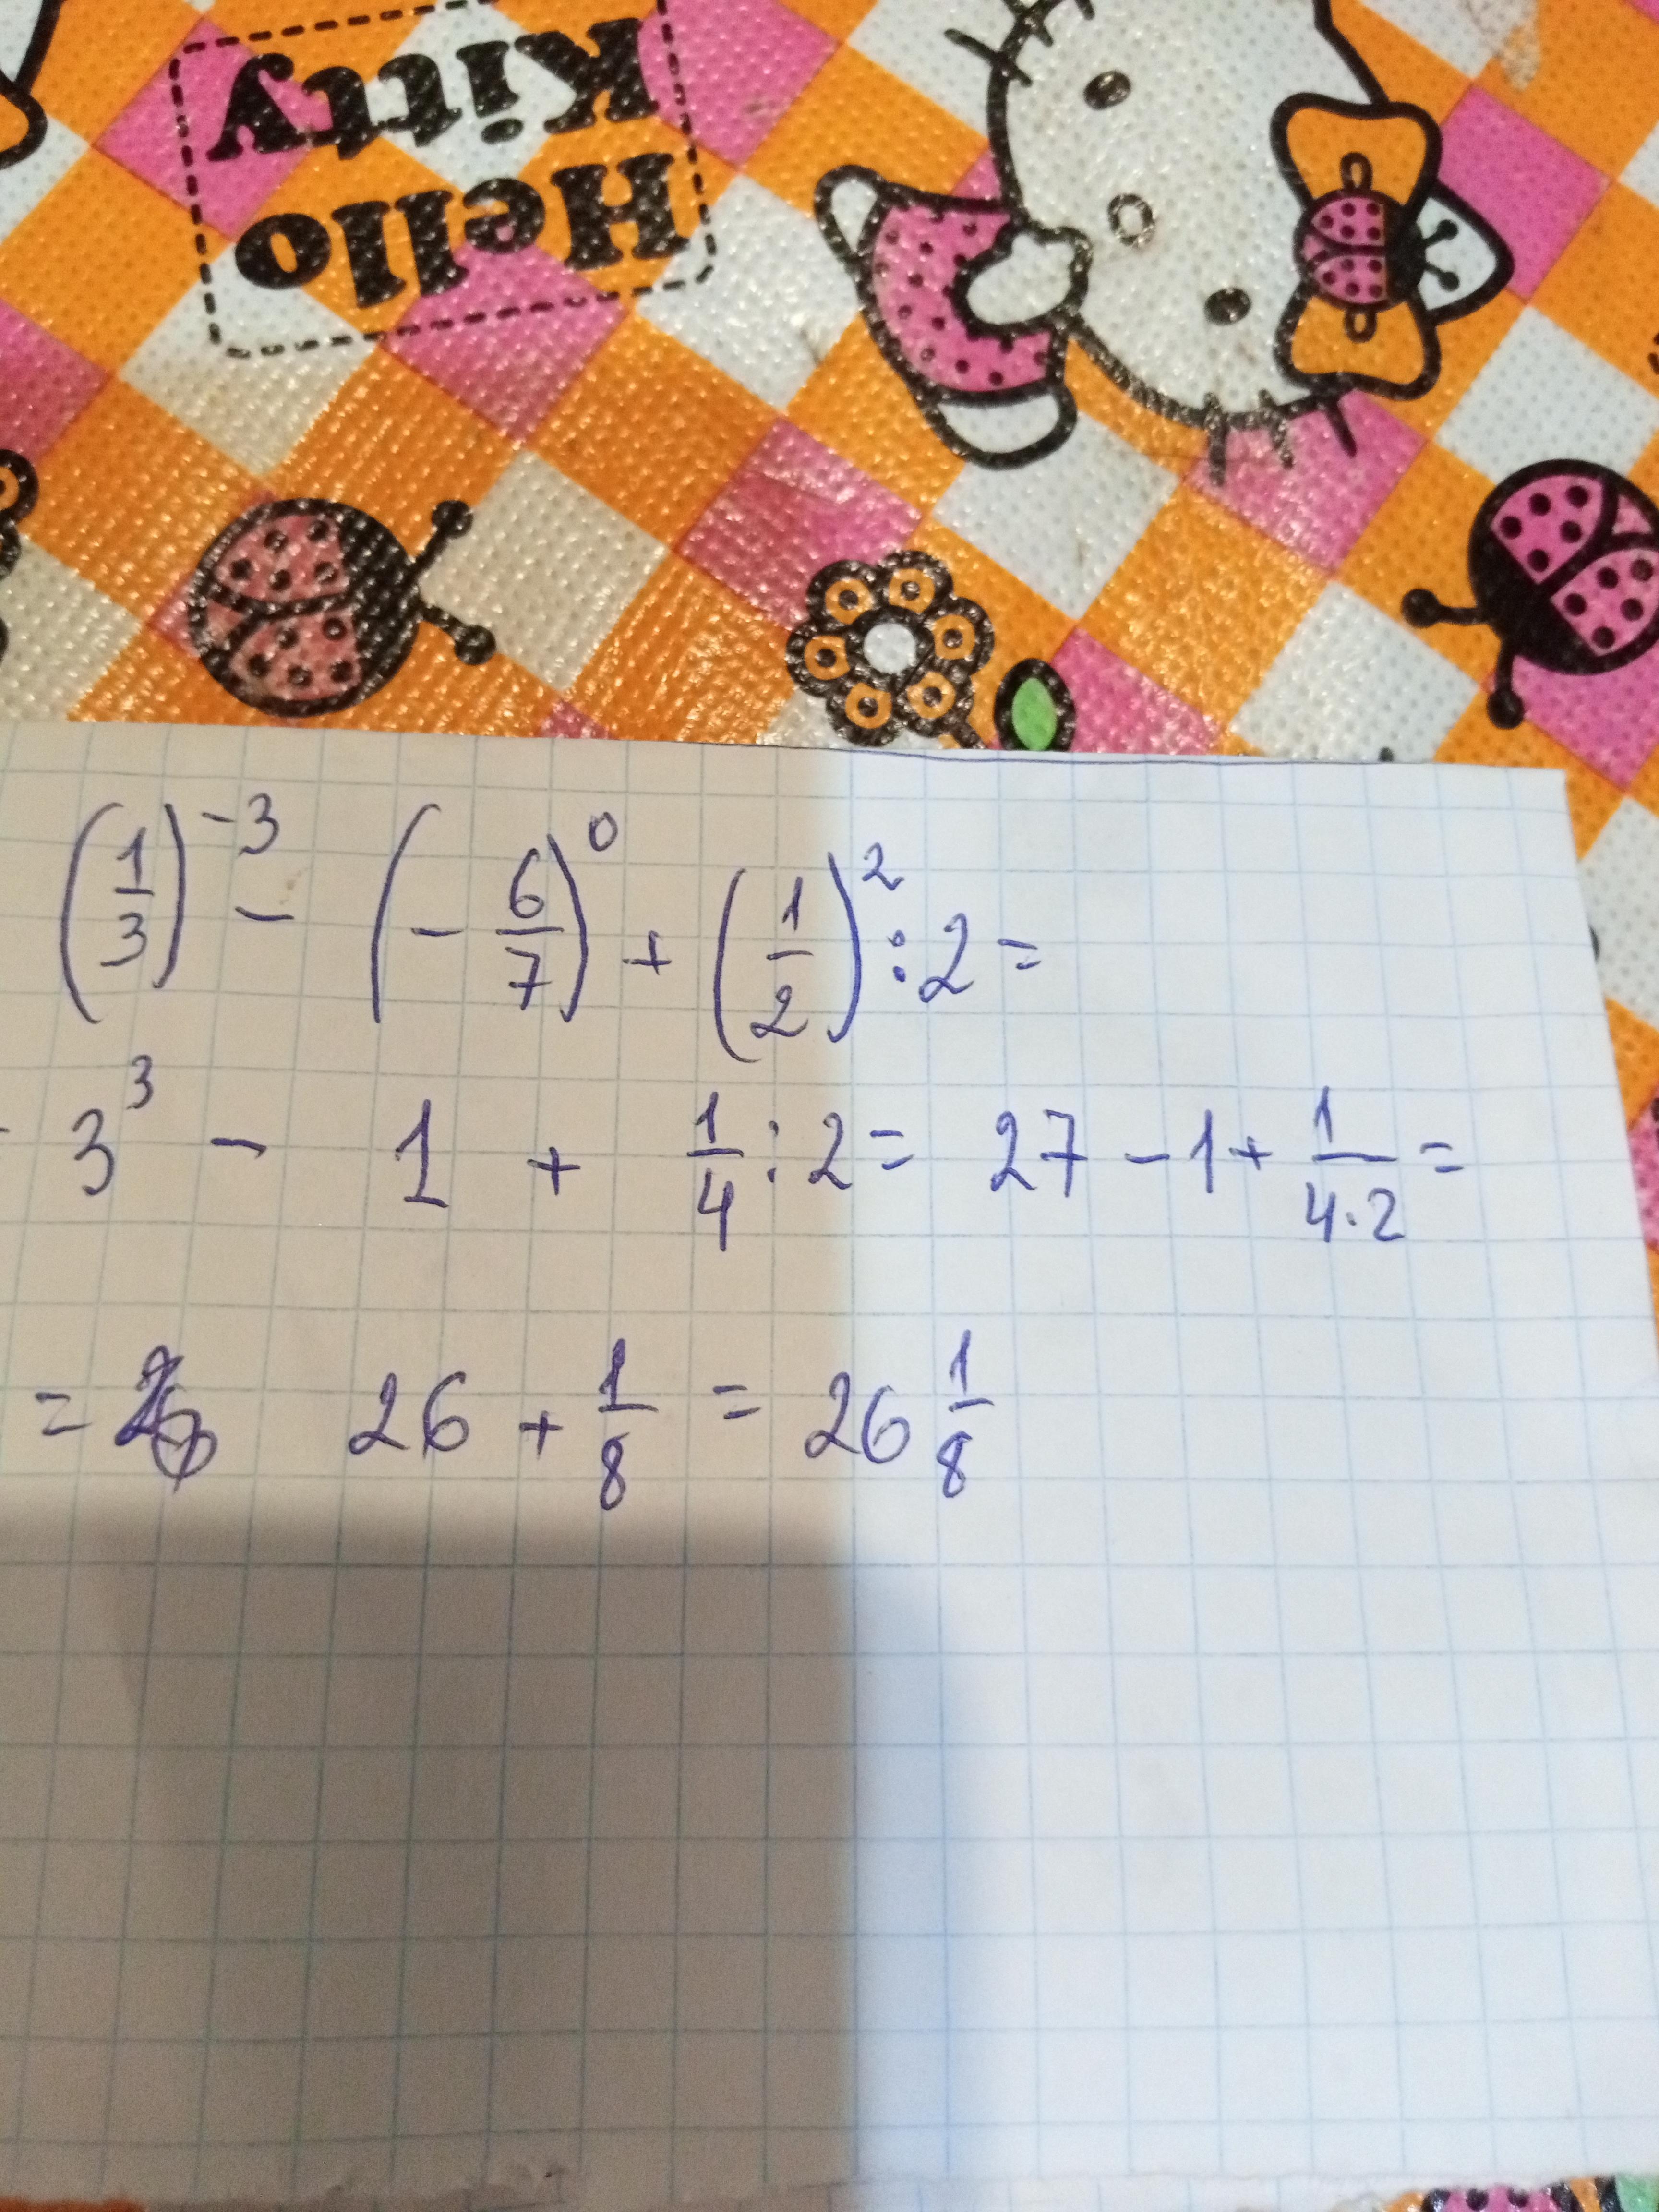 Hello
Kitty
(1/3)^-3 - (- 6/7)^0 + (1/2)^2 : 2 =
- 3^3 - 1 + 1/4 : 2 = 27 - 1 + 1/(4·2) =
= 26 + 1/8 = 26 1/8